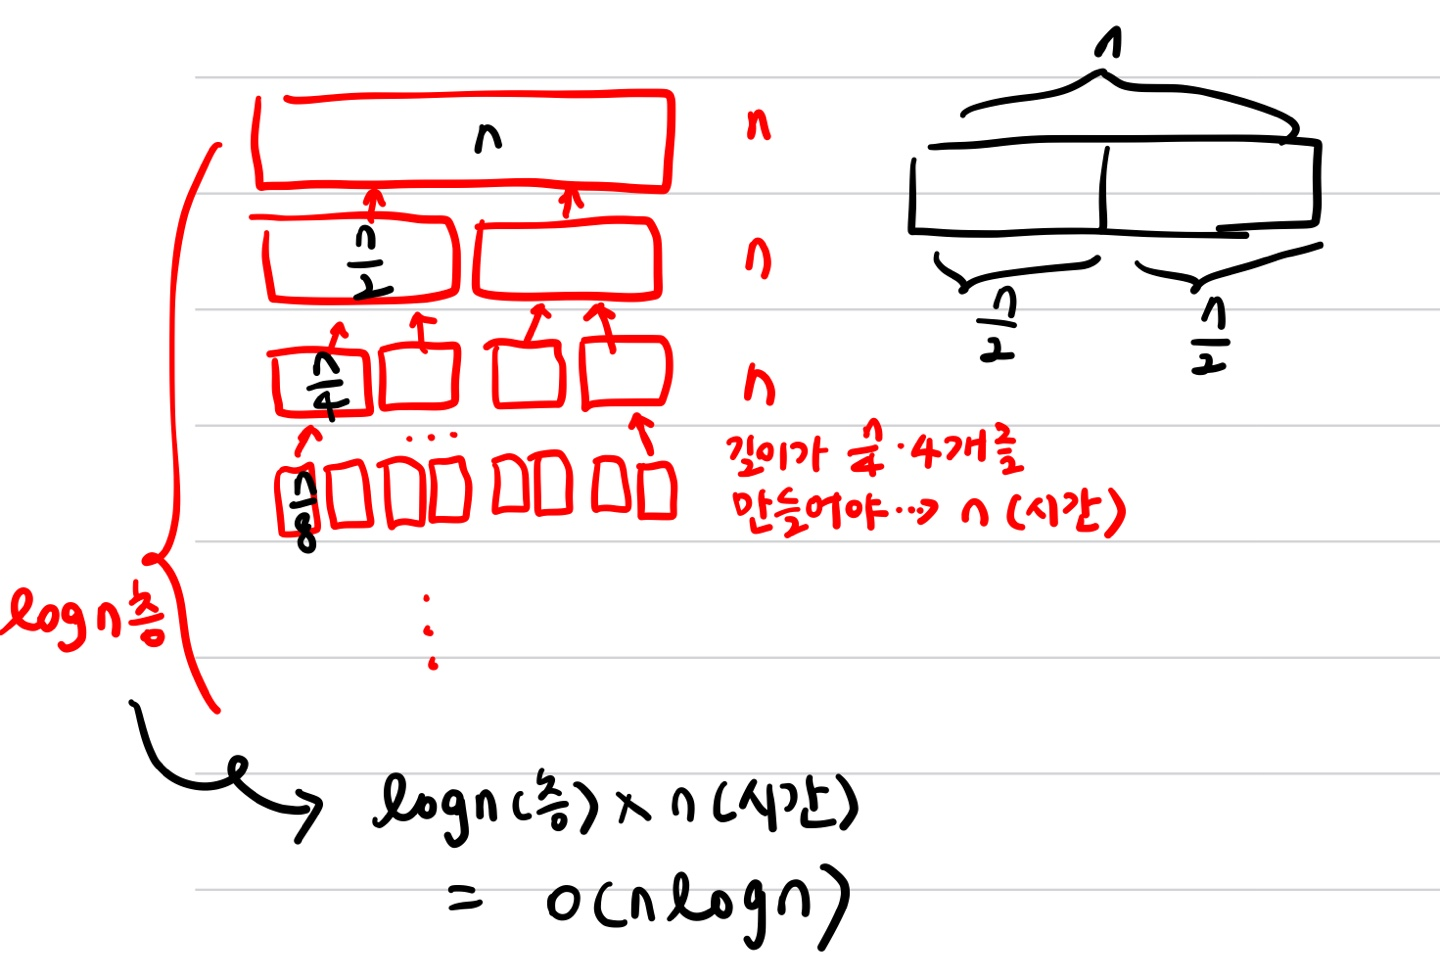 n
n
n
n/2
n
n/4
n
n/8
길이가 n/4 · 4개를
만들어야 ··→ n (시간)
logn층
n
n/2 n/2
logn(층) × n (시간)
= O(nlogn)